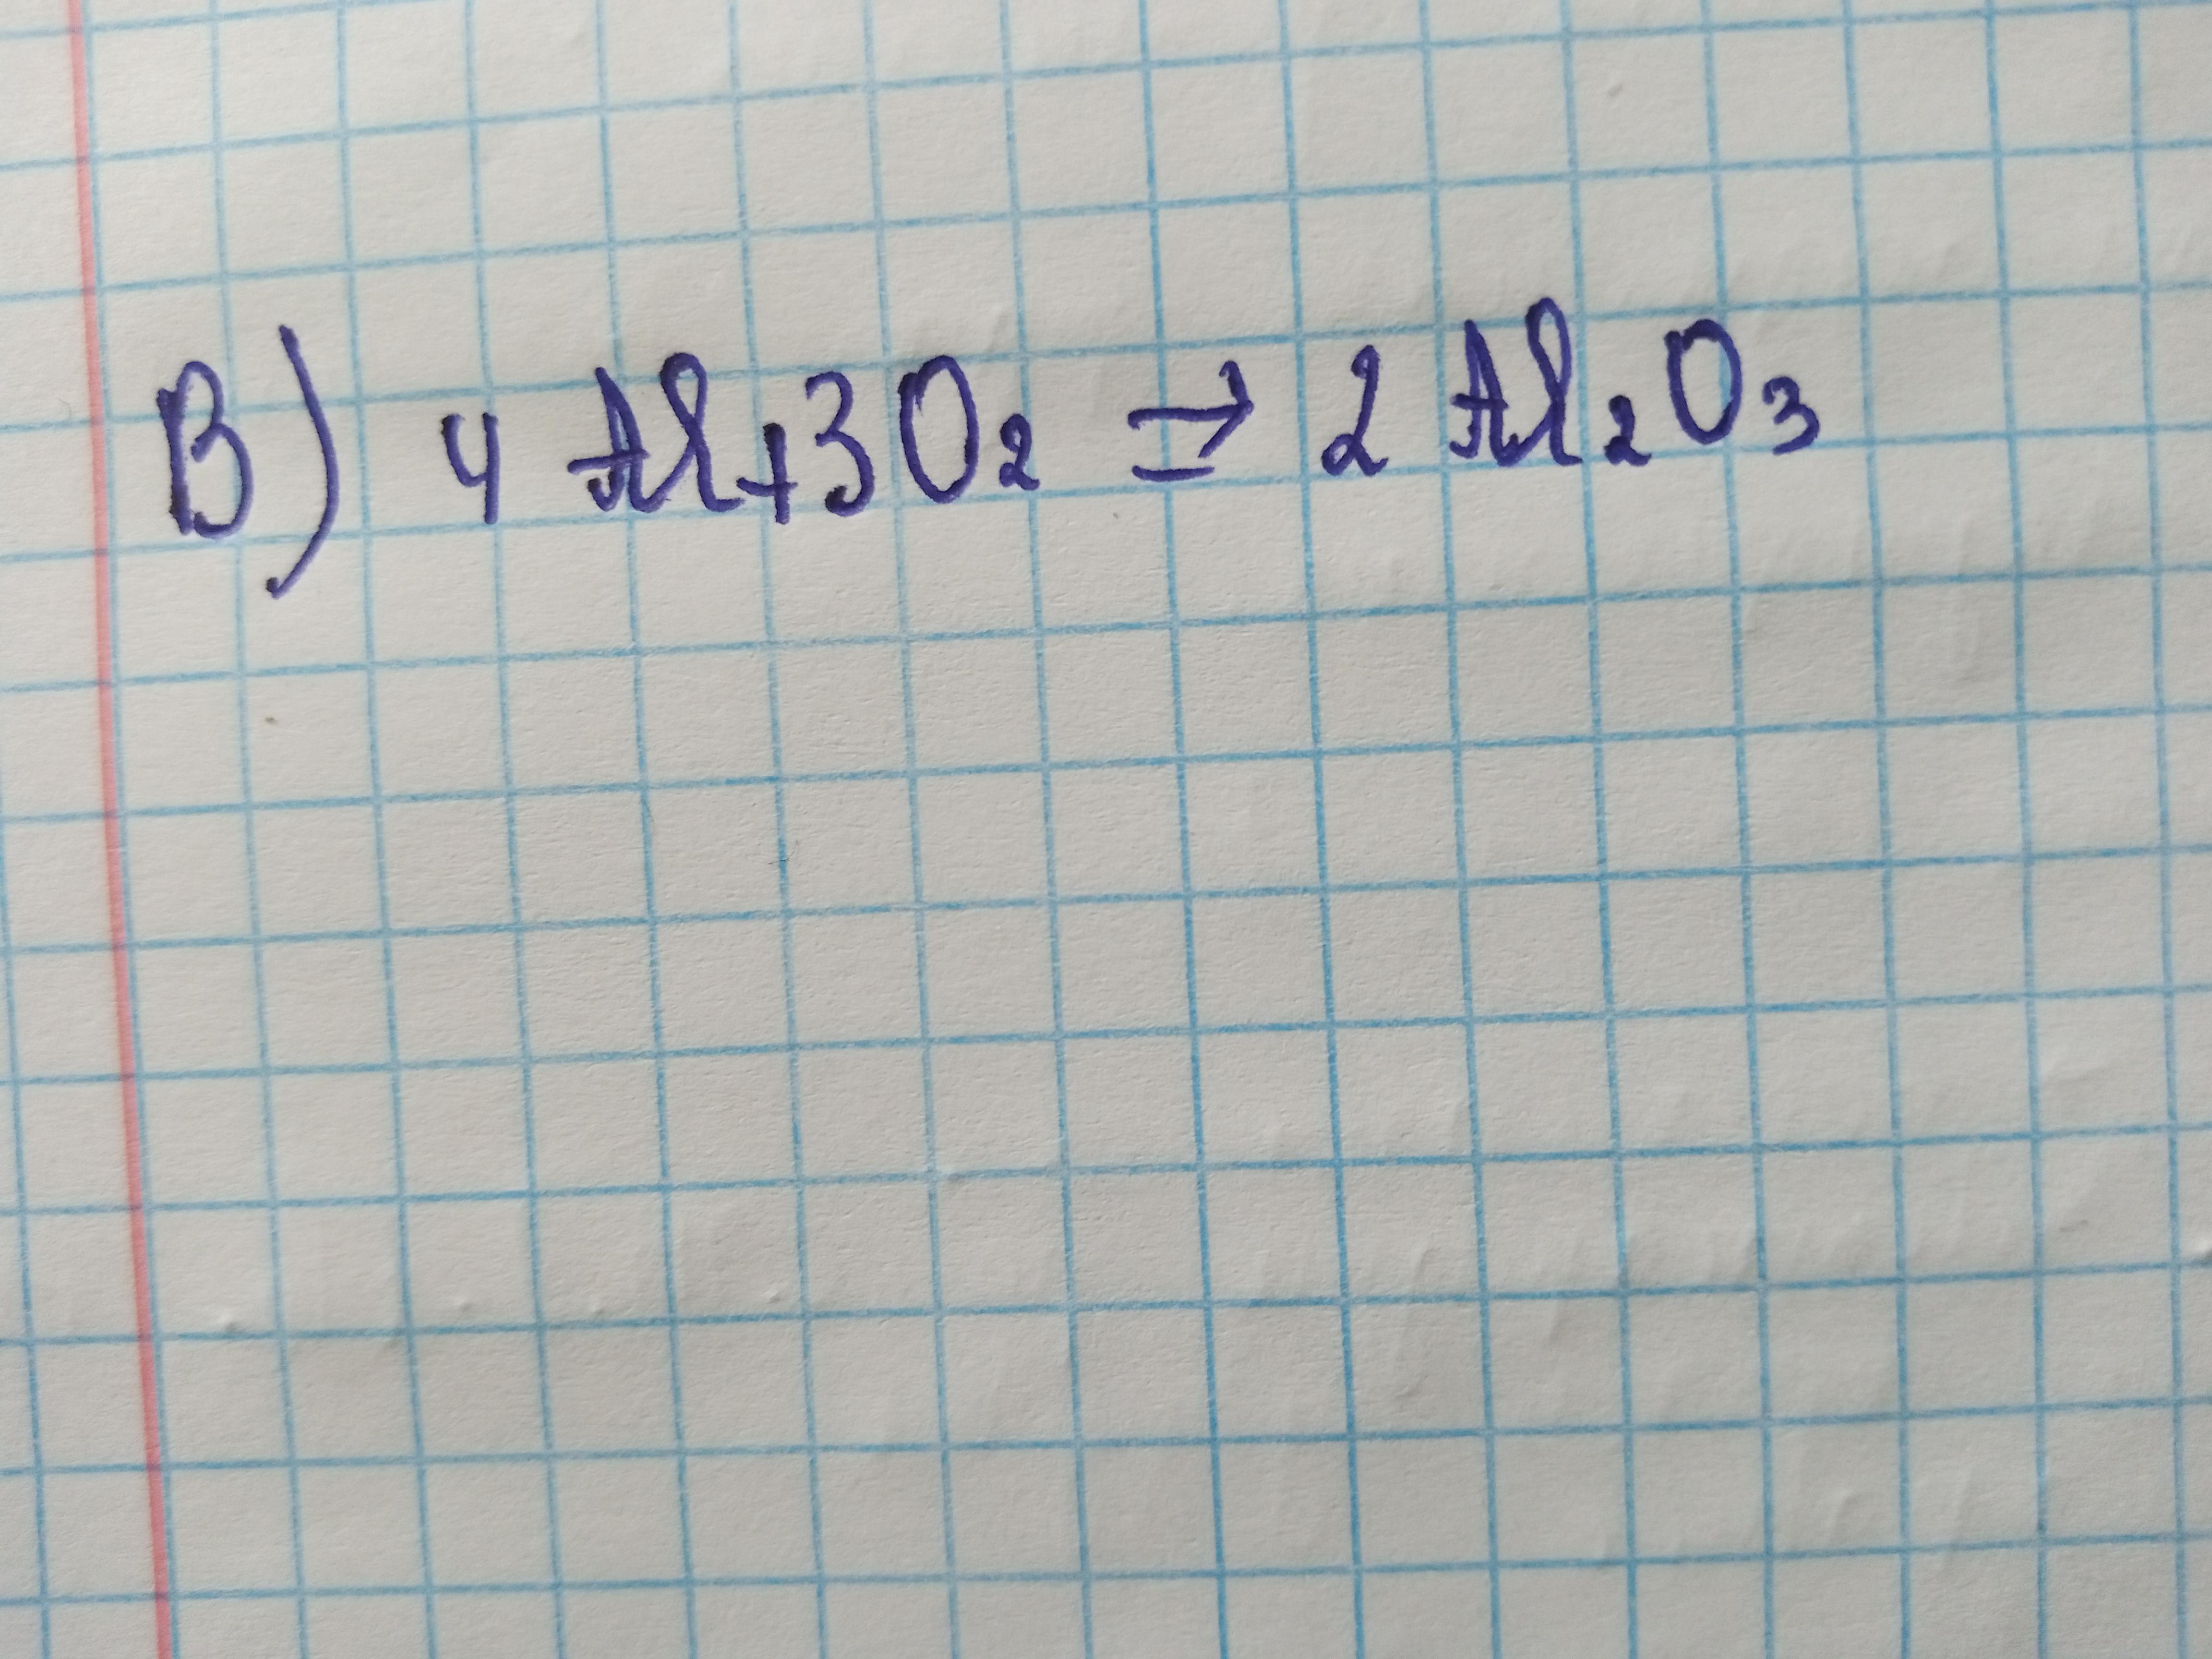 В) 4 Al + 3 O₂ ⇒ 2 Al₂O₃